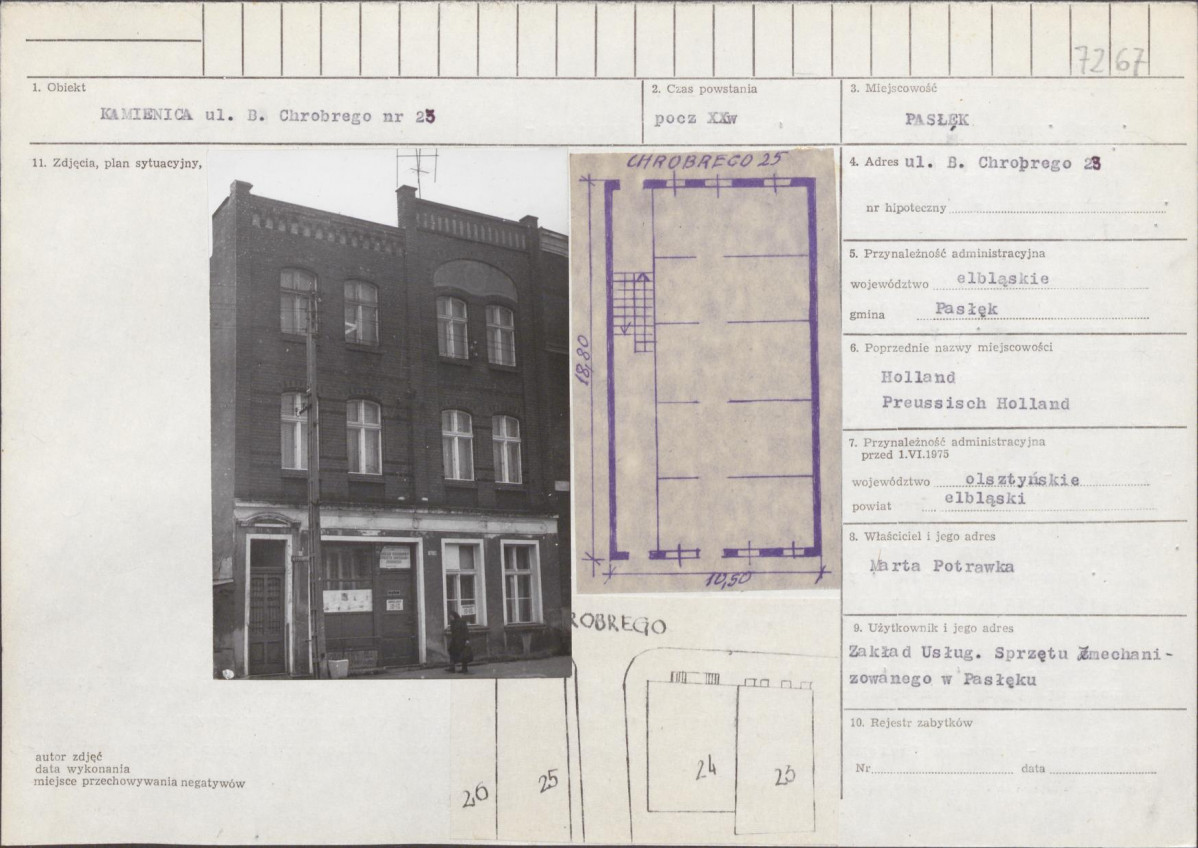 7267
1. Obiekt
KAMIENICA ul. B. Chrobrego nr 25
2. Czas powstania
pocz XXw
3. Miejscowość
PASŁĘK
11. Zdjęcia, plan sytuacyjny,
CHROBREGO 25
18,80
10,50
4. Adres ul. B. Chrobrego 23
nr hipoteczny
5. Przynależność administracyjna
województwo elbląskie
gmina Pasłęk
6. Poprzednie nazwy miejscowości
Holland
Preussisch Holland
7. Przynależność administracyjna
przed 1.VI.1975
województwo olsztyńskie
powiat elbląski
8. Właściciel i jego adres
Marta Potrawka
9. Użytkownik i jego adres
Zakład Usług. Sprzętu Zmechani-
zowanego w Pasłęku
10. Rejestr zabytków
Nr data
ROBREGO
26
25
24
23
autor zdjęć
data wykonania
miejsce przechowywania negatywów